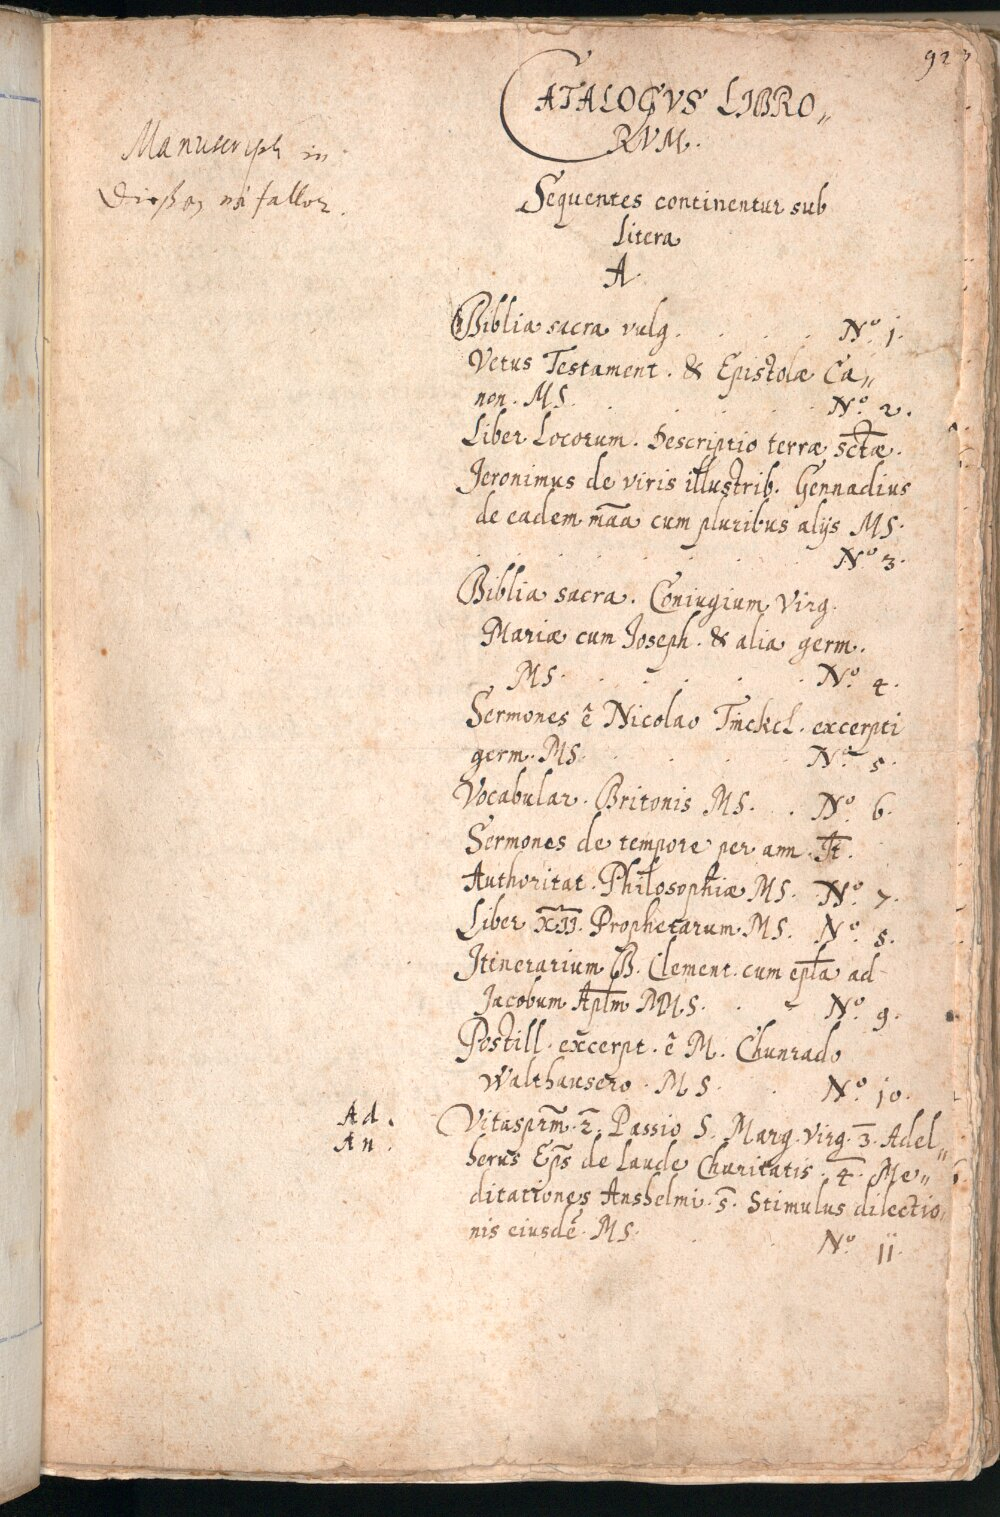 92
CATALOGVS LIBRO„
RVM.
Manuscripta in
Dießen ni fallor.
Sequentes continentur sub
litera
A.
Biblia sacra vulg. . . . . N.º 1.
Vetus Testament. & Epistolæ Ca„
non. MS. . . . . . N.º 2.
Liber Locorum. Descriptio terræ sctæ.
Jeronimus de viris illustrib. Gennadius
de eadem mãa cum pluribus alijs MS.
. . . . . . N.º 3.
Biblia sacra. Coniugium Virg.
Mariæ cum Joseph. & alia germ.
MS. . . . . . N.º 4.
Sermones ẽ Nicolao excerpti
germ. MS. . . . . N.º 5.
Vocabular. Britonis MS. . . N.º 6.
Sermones de tempore per ann. It.
Authoritat. Philosophiæ MS. N.º 7.
Liber XII. Prophetarum MS. N.º 8.
Itinerarium B. Clement. cum epla ad
Jacobum Aplm MMS. . . N.º 9.
Postill. excerpt. ẽ M. Chunrado
Walthausero. MS. . . N.º 10.
Ad. Vitasprm. 2. Passio S. Marg. virg. 3. Adel„
An. herus Eps de laude Charitatis. 4. Me„
ditationes Anshelmi. 5. Stimulus dilectio„
nis eiusdẽ. MS. . . . N.º 11.